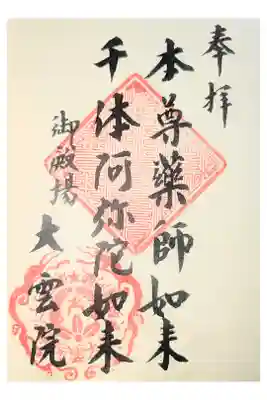 奉拝
本尊薬師如来
千体阿弥陀如来
御殿場
大雲院